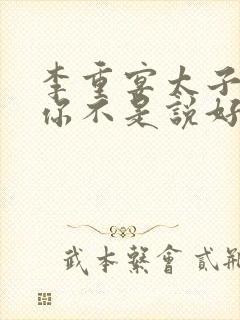 李重宴太子
你不是說好
武本繫會貳